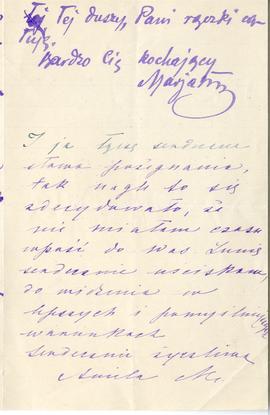 Tej duszy, Pani rączki ca-
łuję.
Bardzo Cię kochający
Marjan
I ja łączę serdeczne
słowa pożegnania,
tak nagle to się
zdecydowało, że
nie miałam czasu
wpaść do was
serdecznie uściskam,
do widzenia w
lepszych i pomyślniejszych
warunkach
serdecznie życzliwa